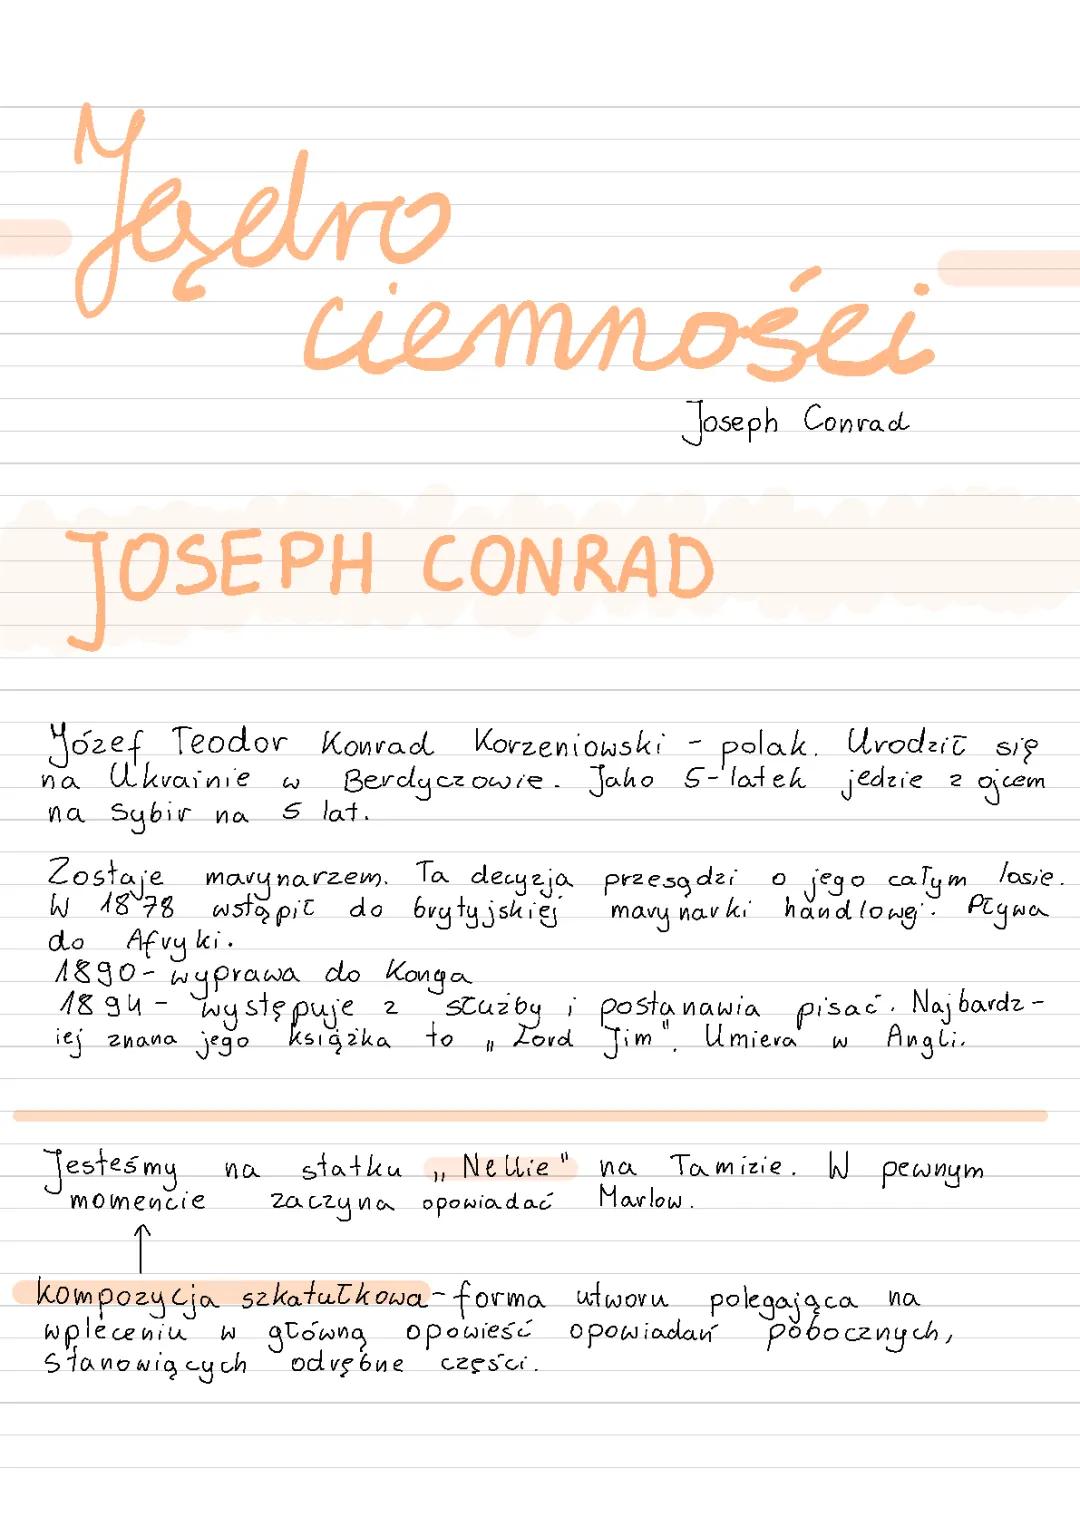 Jądro
ciemności
Joseph Conrad
JOSEPH CONRAD
Józef Teodor Konrad Korzeniowski - polak. Urodził się
na Ukrainie w Berdyczowie. Jako 5-latek jedzie z ojcem
na Sybir na 5 lat.
Zostaje marynarzem. Ta decyzja przesądzi o jego całym losie.
W 1878 wstąpił do brytyjskiej marynarki handlowej. Pływa
do Afryki.
1890 - wyprawa do Konga
1894 - występuje z służby i postanawia pisać. Najbardz-
iej znana jego książka to „Lord Jim". Umiera w Angli.
Jesteśmy na statku „Nellie" na Tamizie. W pewnym
momencie zaczyna opowiadać Marlow.
↑
Kompozycja szkatułkowa - forma utworu polegająca na
wpleceniu w główną opowieść opowiadań pobocznych,
stanowiących odrębne części.